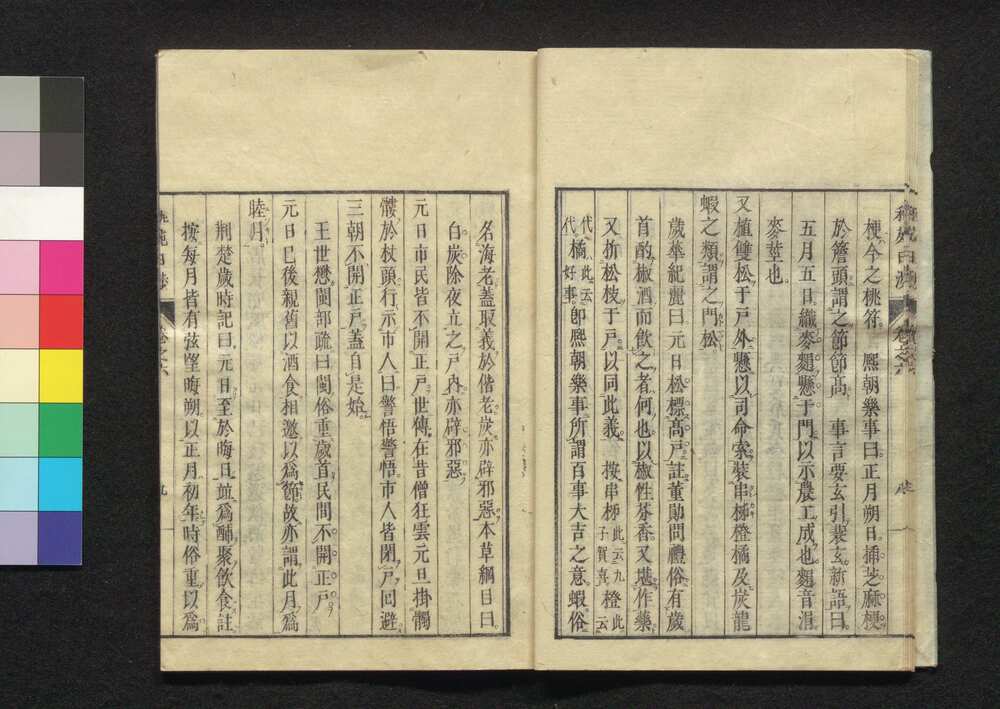 梗今之桃符 熈朝樂事曰正月朔日挿芝麻梗
於簷頭謂之節節高 事言要玄引裴玄新語曰
五月五日織麥䅌懸于門以示農工成也䅌音涓
麥莖也
又植雙松于戸外懸以司命索裝串柹橙橘及炭龍
蝦之類謂之門松
歲華紀麗曰元日松標高戸註董勛問禮俗有歲
首酌椒酒而飲之者何也以椒性芬香又堪作藥
又折松枝于戸以同此義 按串柹此云九子賀喜橙此云
代代橘此云好事即熈朝樂事所謂百事大吉之意蝦俗
名海老蓋取義於偕老炭亦辟邪惡本草綱目曰
白炭除夜立之戸內亦辟邪惡
元日市民皆不開正戸世傳在昔僧狂雲元旦掛髑
髏於杖頭行示市人曰警悟警悟市人皆閉戸回避
三朝不開正戸蓋自是始
王世懋閩部疏曰閩俗重歲首民間不開正戸
元日已後親舊以酒食相邀以爲節故亦謂此月爲
睦月
荆楚歲時記曰元日至於晦日並爲酺聚飲食註
按每月皆有弦望晦朔以正月初年時俗重以爲
卷之六
九